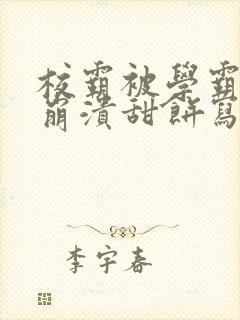 校霸被學霸
崩潰甜餅寫
李宇春